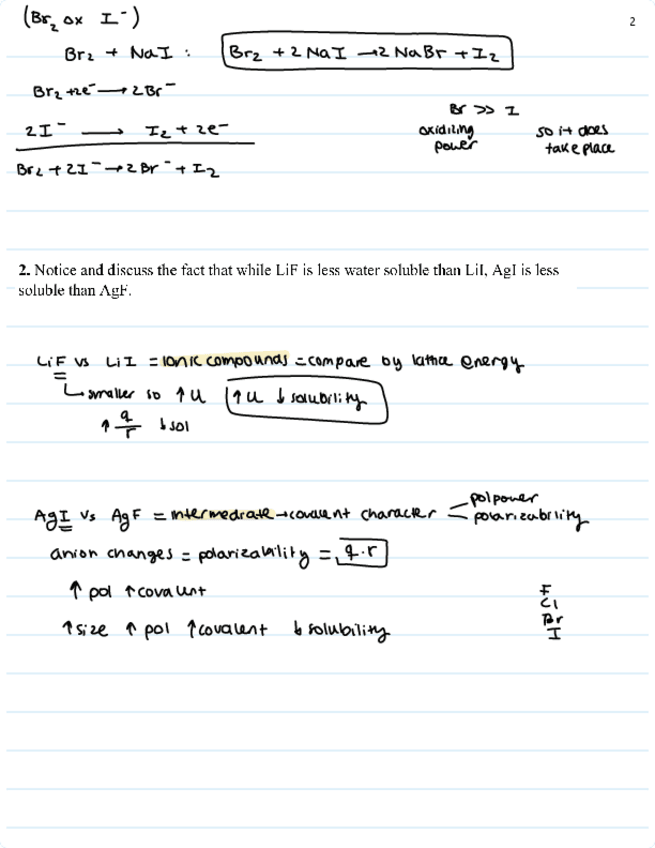 (Br₂ ox I⁻)
2
Br₂ + NaI : Br₂ + 2 NaI → 2 NaBr + I₂
Br₂ + 2e⁻ → 2Br⁻
Br >> I
2I⁻ → I₂ + 2e⁻
oxidizing power
so it does take place
Br₂ + 2I⁻ → 2 Br⁻ + I₂
2. Notice and discuss the fact that while LiF is less water soluble than LiI, AgI is less
soluble than AgF.
LiF vs LiI = ionic compounds = compare by lattice energy
↳ smaller so ↑ U ↑ U ↓ solubility
↑ q/r ↓ sol
AgI vs AgF = intermediate → covalent character = pol power
polarizability
anion changes = polarizability = q·r
↑ pol ↑ covalent
↑ size ↑ pol ↑ covalent ↓ solubility
F
Cl
Br
I